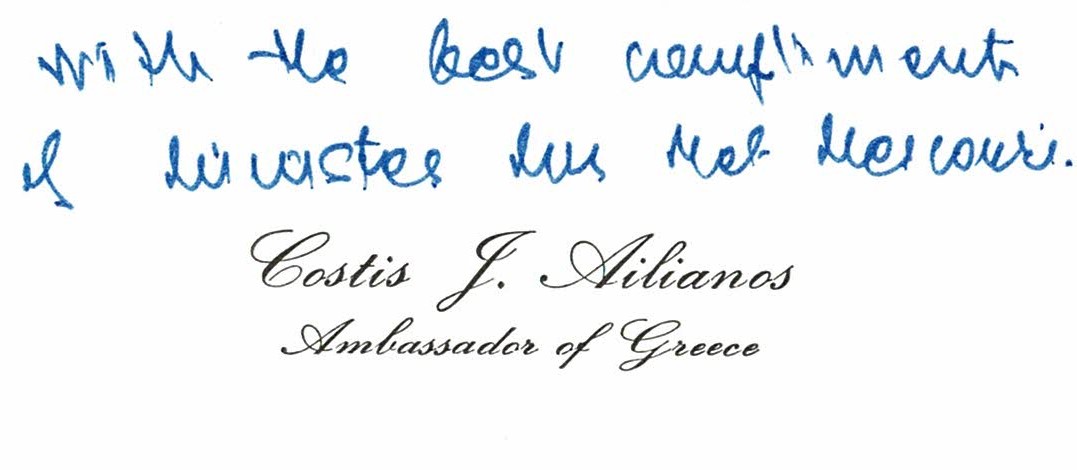 with the best compliments
of Minister Mrs Mel Mercouri.
Costis J. Ailianos
Ambassador of Greece